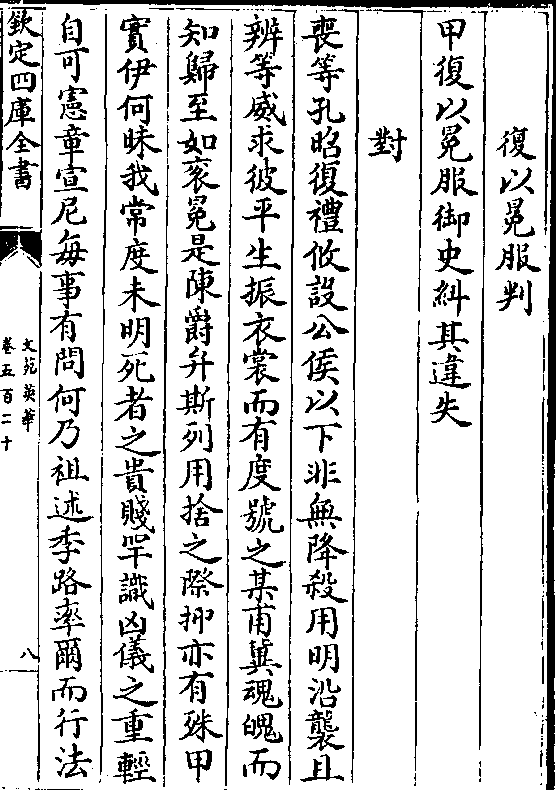 復以冕服判
甲復以冕服御史糾其違失
對
喪等孔昭復禮攸設公侯以下非無降殺用明沿襲且
辨等威求彼平生振衣裳而有度號之某甫兾魂魄而
知歸至如衮冕是陳爵弁斯列用捨之際抑亦有殊甲
實伊何昧我常度未明死者之貴賤罕識凶儀之重輕
自可憲章宣尼每事有問何乃祖述季路率爾而行法
欽定四庫全書
文苑英華
卷五百二十
八